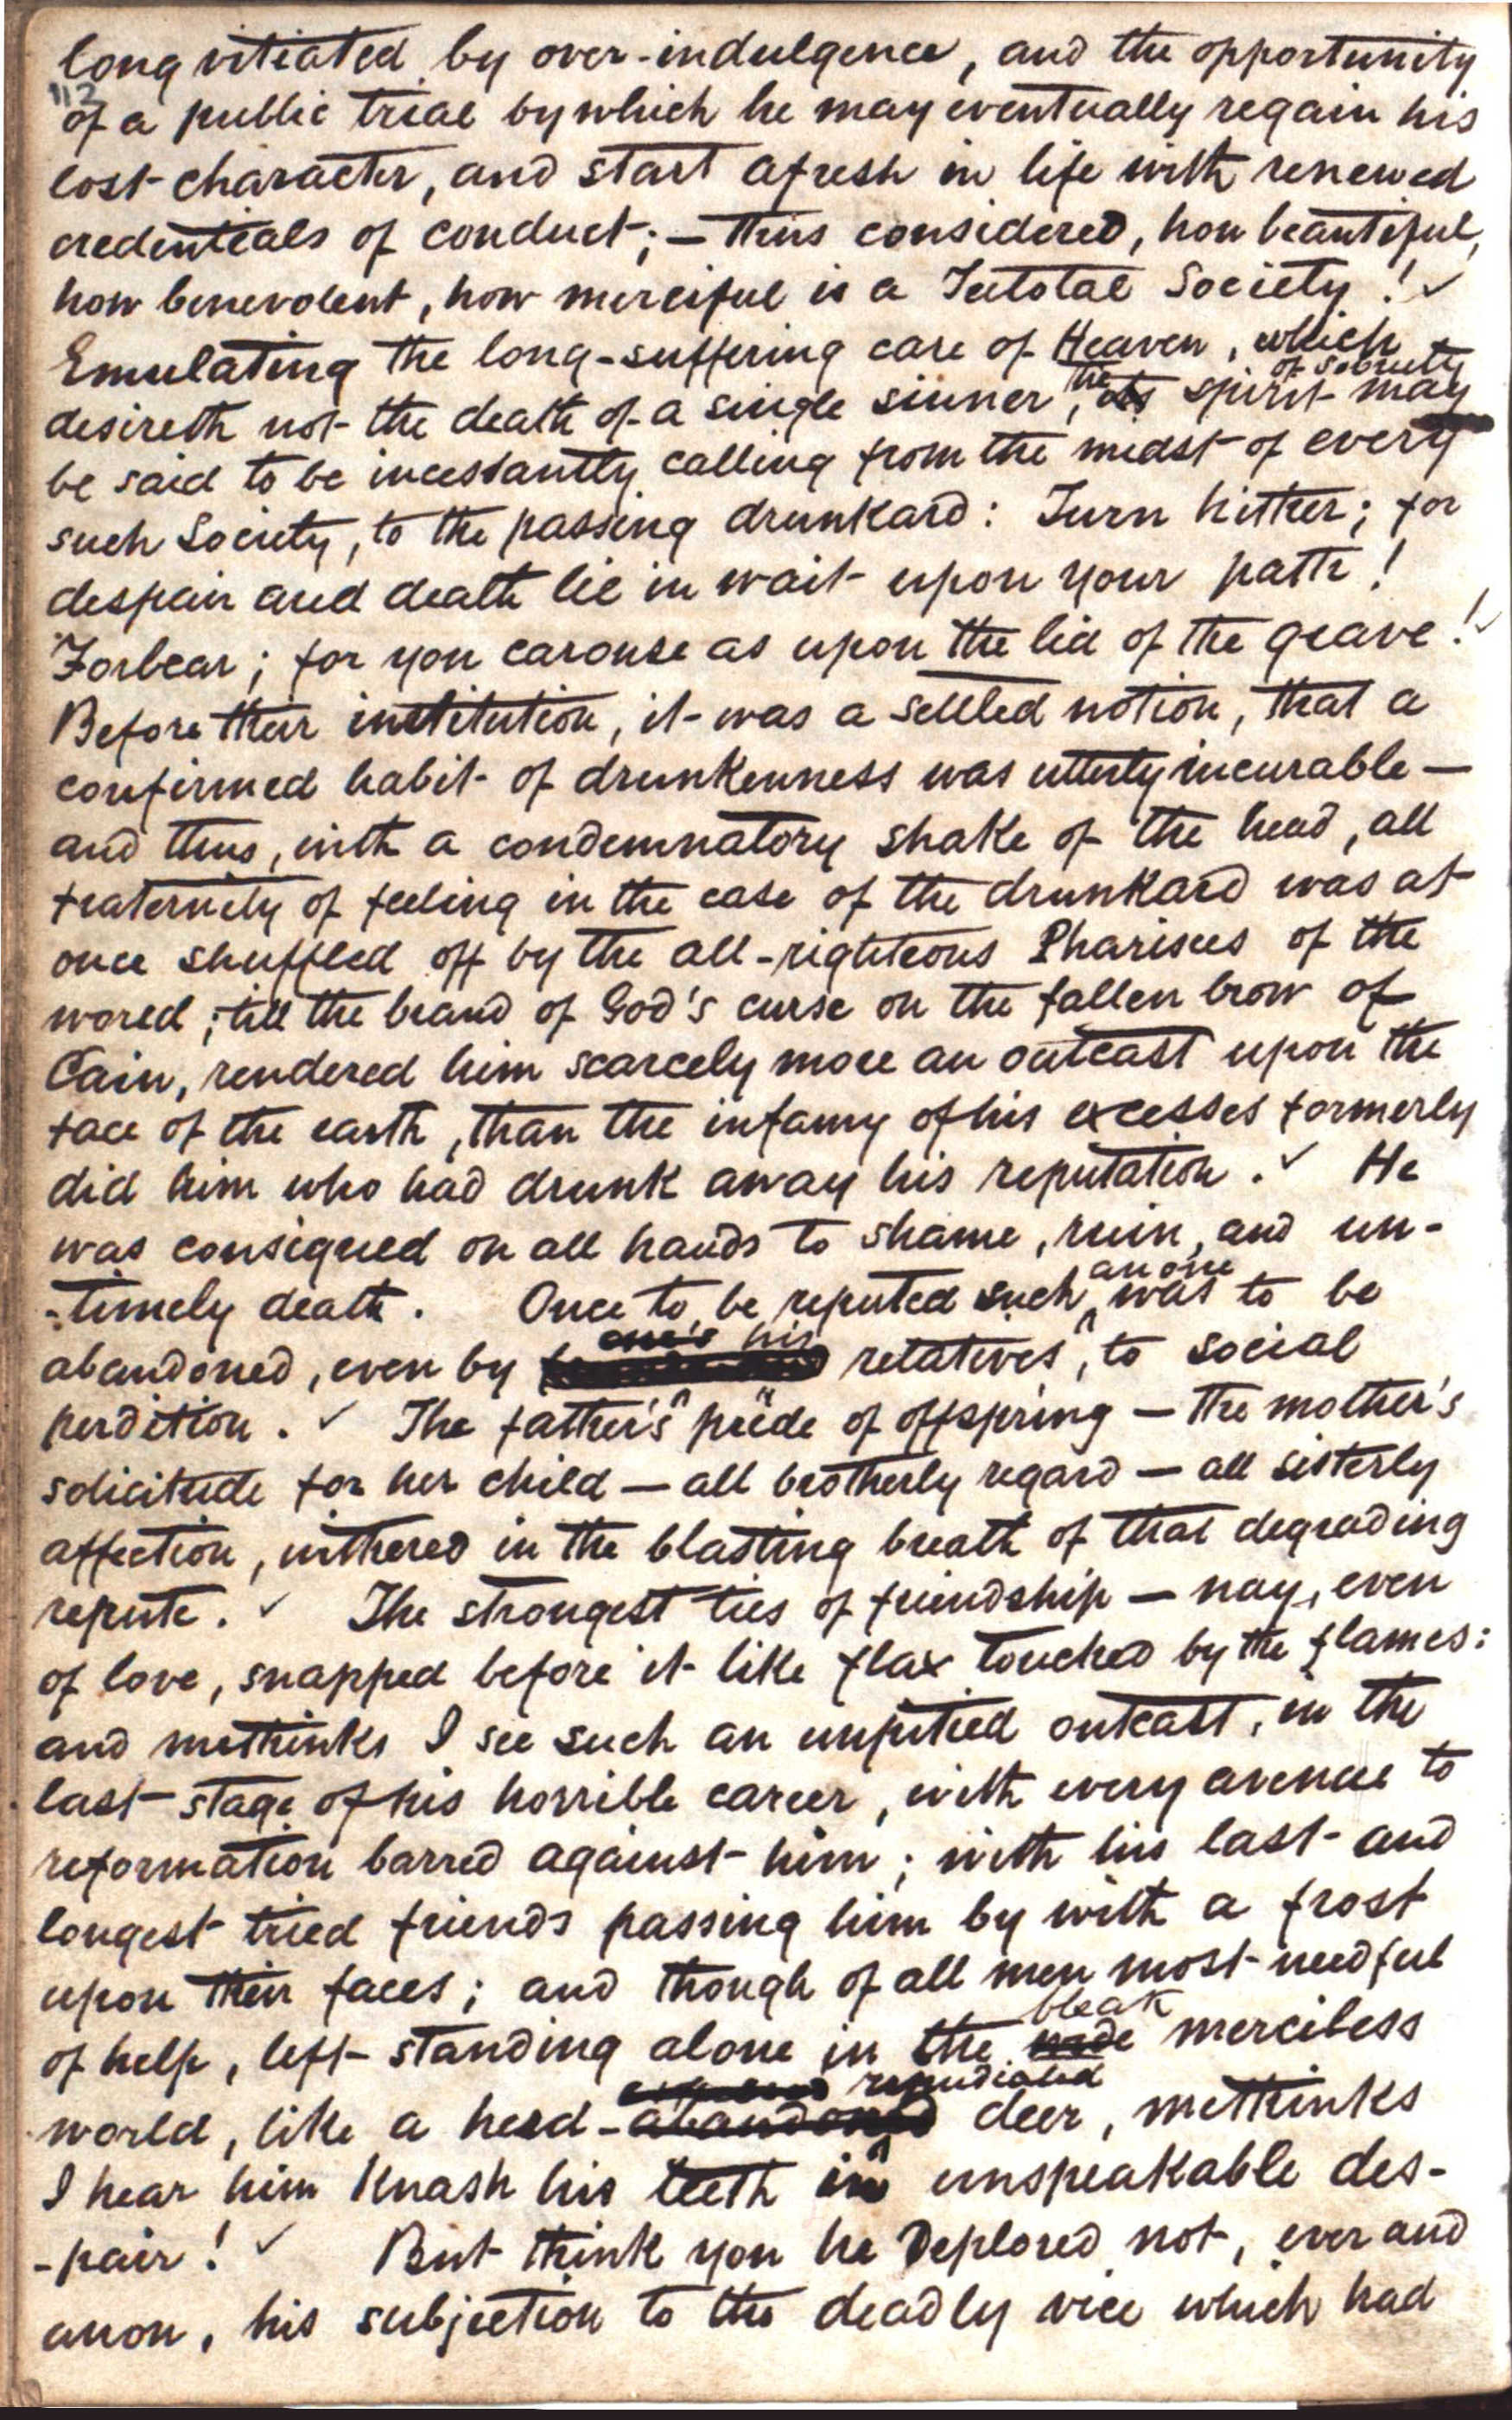 long vitiated by over-indulgence, and the opportunity
112
of a public trial by which he may eventually regain his
lost character, and start afresh in life with renewed
credentials of conduct; — thus considered, how beautiful,
how benevolent, how merciful is a Teetotal Society! ✓
Emulating the long-suffering care of Heaven, which
of sobriety
desireth not the death of a single sinner, the its spirit may
be said to be incessantly calling from the midst of every
such Society, to the passing drunkard: Turn hither; for
despair and death lie in wait upon your path!
Forbear; for you carouse as upon the lid of the grave! ✓
Before their institution, it was a settled notion, that a
confirmed habit of drunkenness was utterly incurable —
and thus, with a condemnatory shake of the head, all
fraternity of feeling in the case of the drunkard was at
once shuffled off by the all-righteous Pharisees of the
world; till the brand of God's curse on the fallen brow of
Cain, rendered him scarcely more an outcast upon the
face of the earth, than the infamy of his excesses formerly
did him who had drunk away his reputation. ✓ He
was consigned on all hands to shame, ruin, and un-
an one
-timely death. Once to be reputed such was to be
one's his
abandoned, even by relatives, to social
perdition. ✓ The father's pride of offspring — the mother's
solicitude for her child — all brotherly regard — all sisterly
affection, withered in the blasting breath of that degrading
repute. ✓ The strongest ties of friendship — nay, even
of love, snapped before it like flax touched by the flames:
and methinks I see such an unpitied outcast, in the
last stage of his horrible career, with every avenue to
reformation barred against him; with his last and
longest tried friends passing him by with a frost
upon their faces; and though of all men most needful
bleak
of help, left standing alone in the wide merciless
repudiated
world, like a herd-abandoned deer, methinks
I hear him Knash his teeth in unspeakable des-
-pair! ✓ But think you he Deplored not, ever and
anon, his subjection to the deadly vice which had